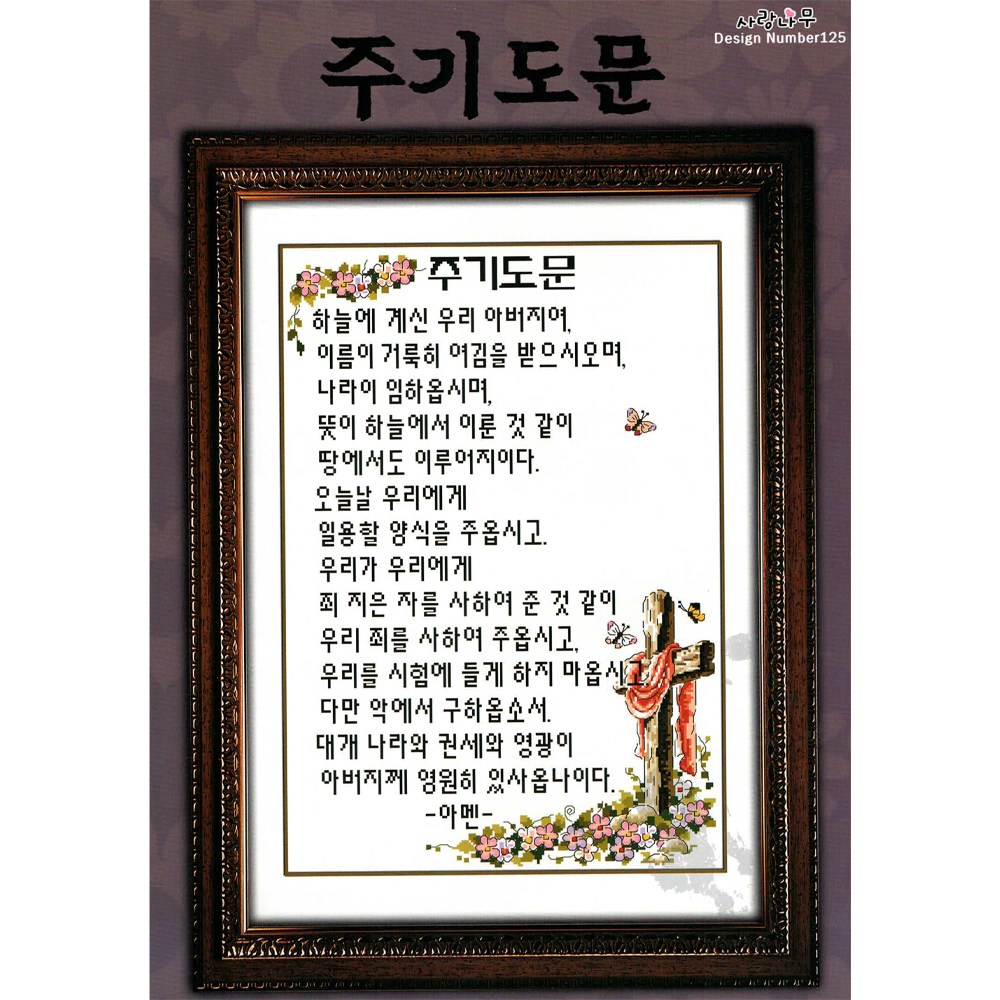 사랑나무
Design Number125
주기도문
주기도문
하늘에 계신 우리 아버지여,
이름이 거룩히 여김을 받으시오며,
나라이 임하옵시며,
뜻이 하늘에서 이룬 것 같이
땅에서도 이루어지이다.
오늘날 우리에게
일용할 양식을 주옵시고.
우리가 우리에게
죄 지은 자를 사하여 준 것 같이
우리 죄를 사하여 주옵시고,
우리를 시험에 들게 하지 마옵시고,
다만 악에서 구하옵소서.
대개 나라와 권세와 영광이
아버지께 영원히 있사옵나이다.
-아멘-